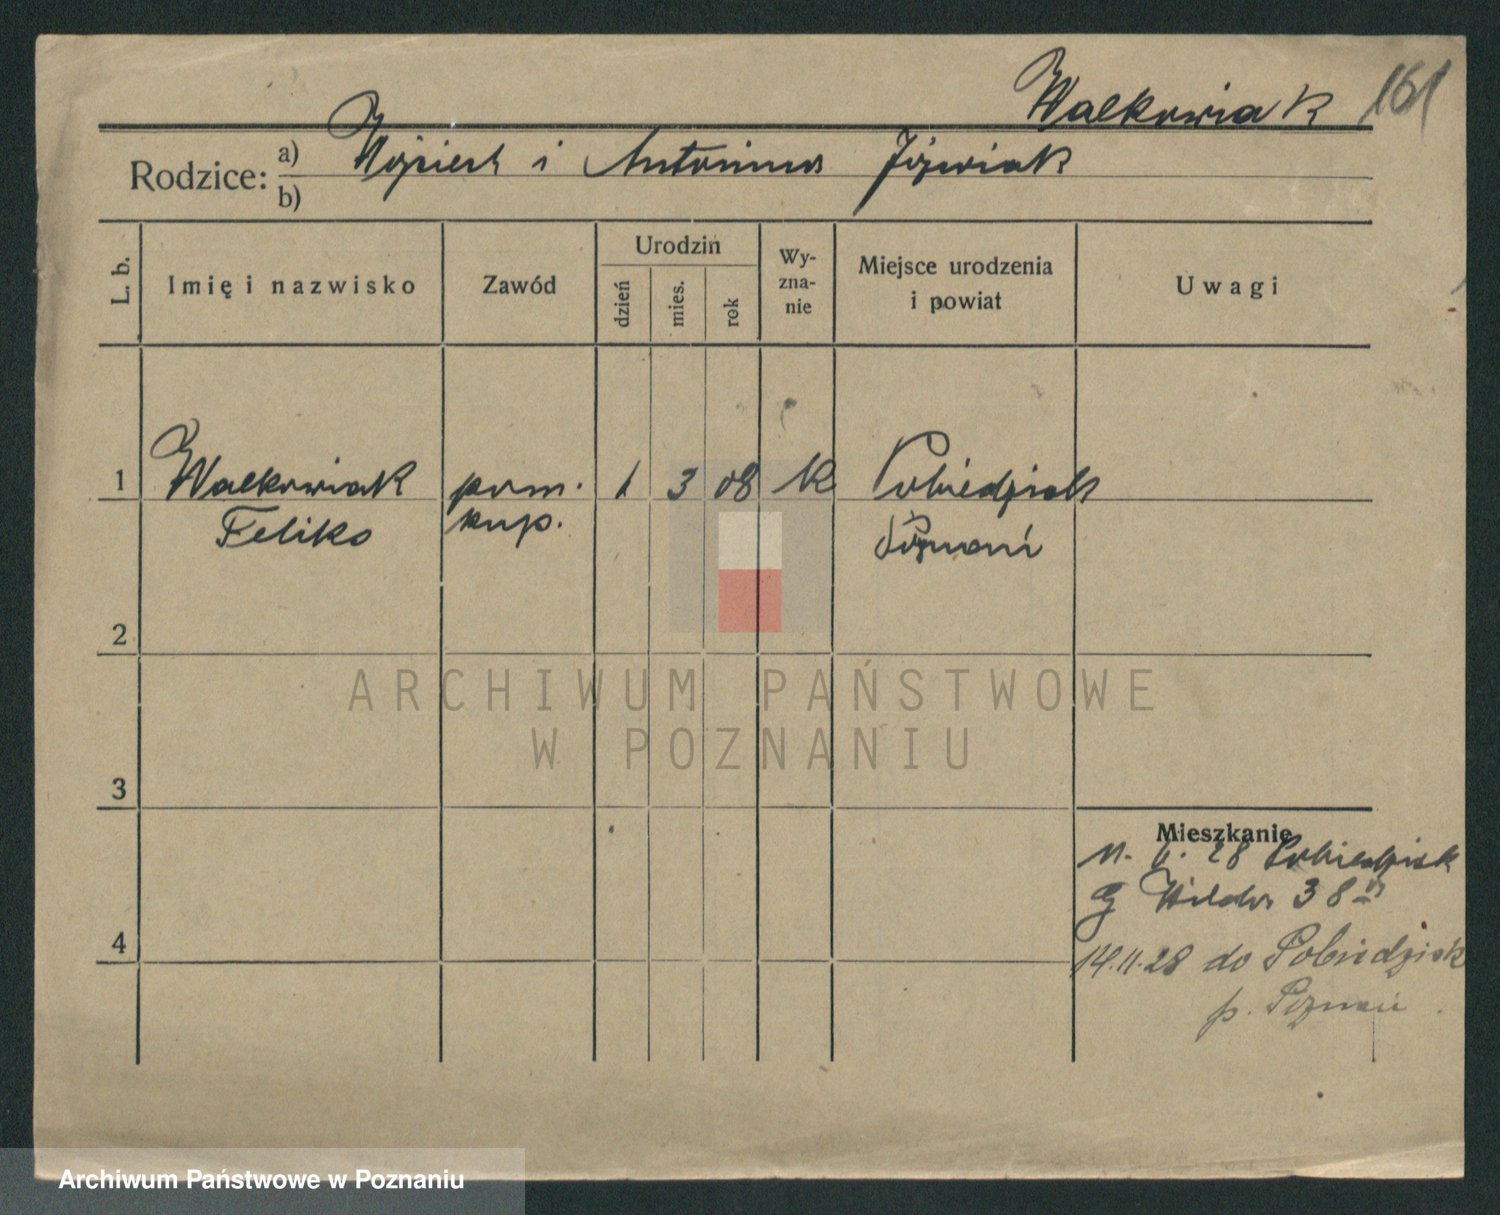 Walkowiak 161
Rodzice: a) Wojciech i Antonina Jóźwiak
b)
L. b.
Imię i nazwisko
Zawód
Urodzin
dzień
mies.
rok
Wy-
zna-
nie
Miejsce urodzenia
i powiat
Uwagi
1 Walkowiak pom. 1 3 08 k Pobiedzisk
Feliks kup. Poznań
2
ARCHIWUM PAŃSTWOWE
W POZNANIU
3
Mieszkanie
6. 28 Pobiedzisk
G Wilda 38
4
14.11.28 do Pobiedzisk
p. Poznań
Archiwum Państwowe w Poznaniu